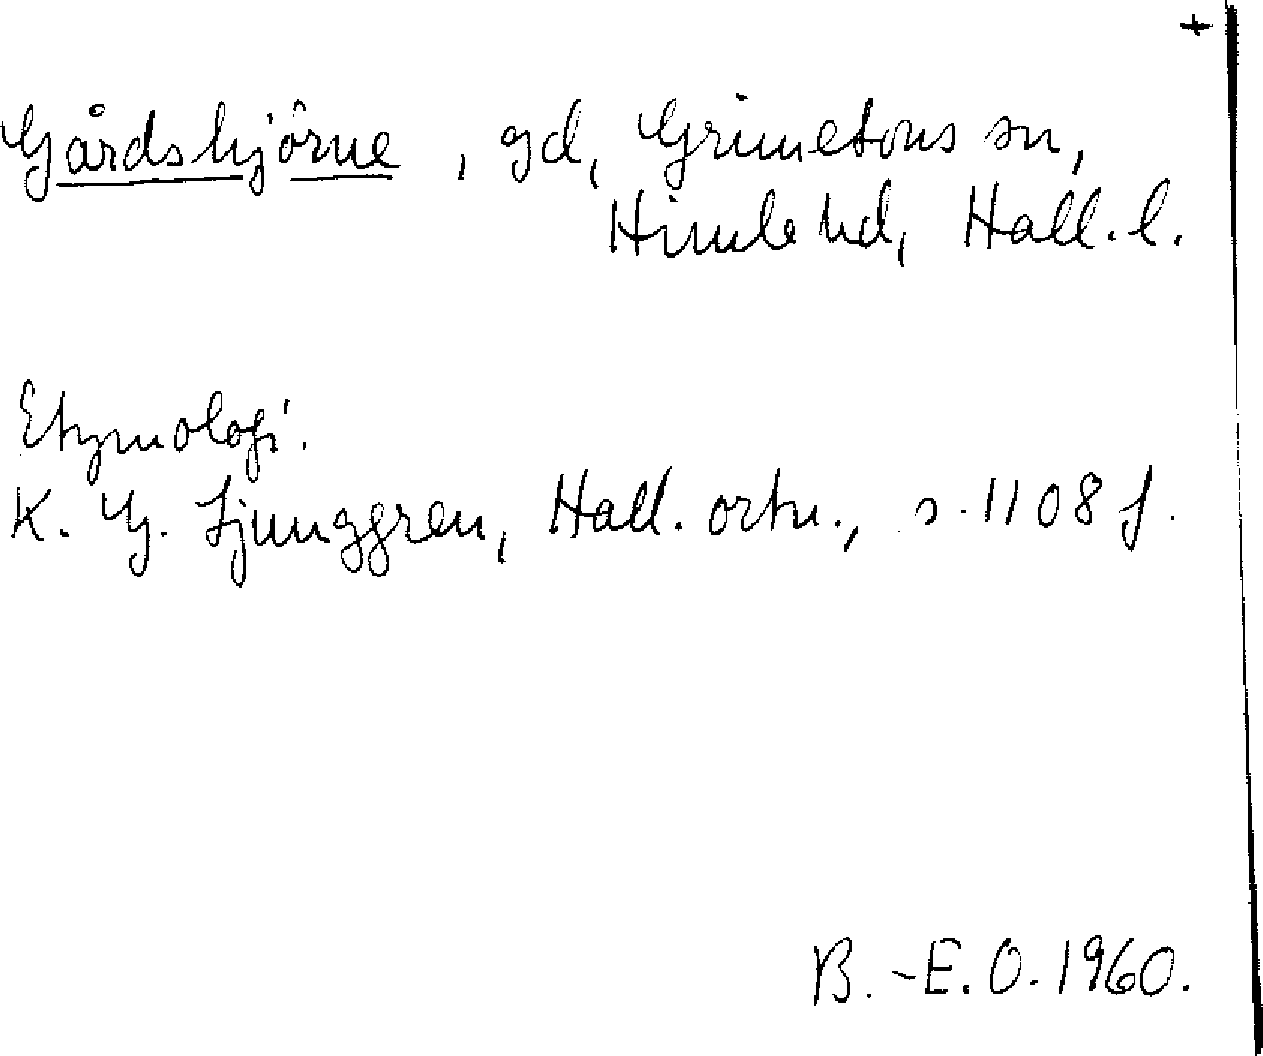 +
Gårdshjörne, gd, Grimetons sn,
Himle hd, Hall. l.
Etymologi.
K. G. Ljunggren, Hall. ortn., s. 1108 f.
B.-E. O. 1960.